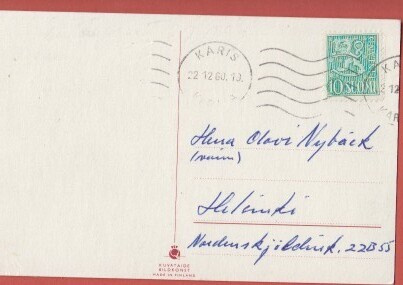 KARIS
22.12.60.10.
10 SUOMI
KA
Herra Olavi Nybäck
Helsinki
Nordenskjöldink. 22B55
KUVATAIDE
BILDKONST
MADE IN FINLAND